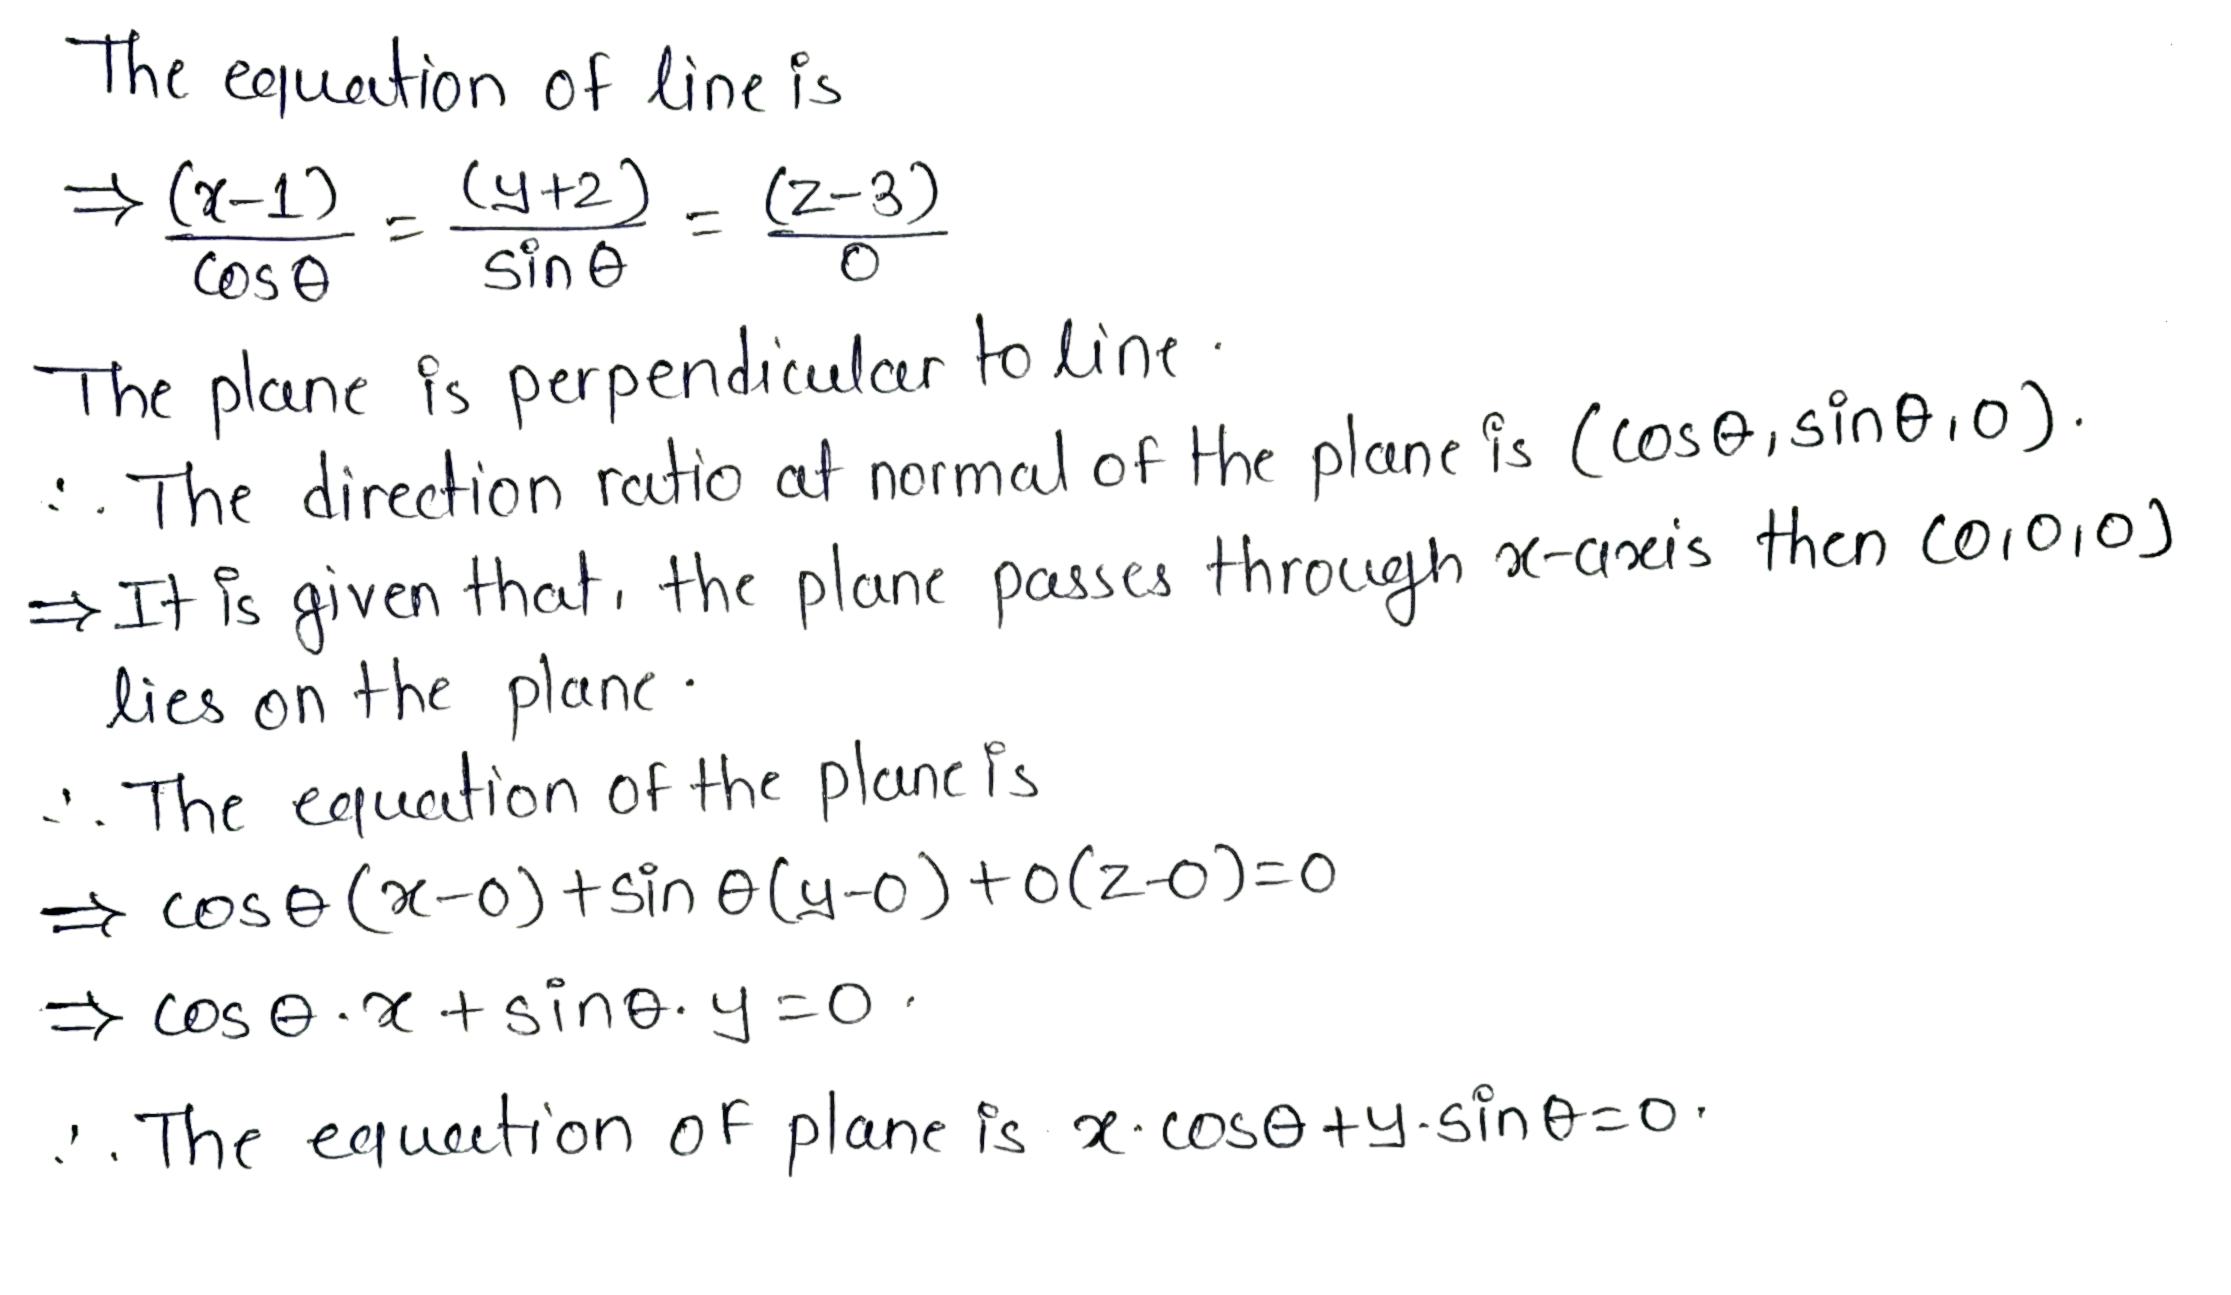 The equation of line is
⇒ (x-1)/cosθ = (y+2)/sinθ = (z-3)/0
The plane is perpendicular to line.
∴ The direction ratio at normal of the plane is (cosθ, sinθ, 0).
⇒ It is given that, the plane passes through x-axis then (0,0,0)
lies on the plane.
∴ The equation of the plane is
⇒ cosθ(x-0)+sinθ(y-0)+0(z-0)=0
⇒ cosθ.x+sinθ.y=0.
∴ The equation of plane is x.cosθ+y.sinθ=0.